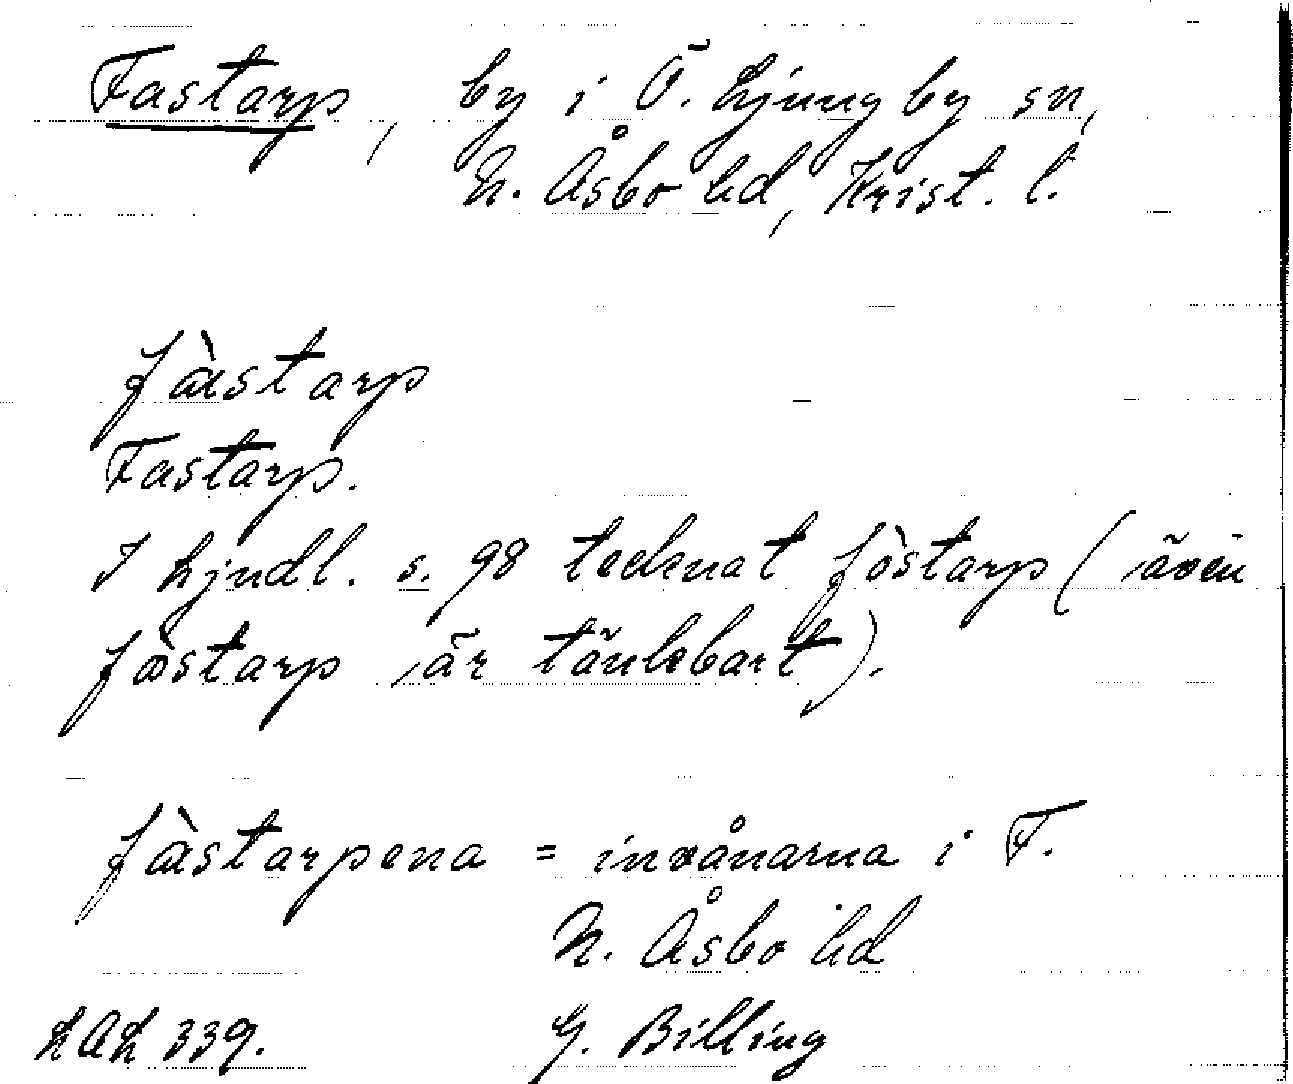 Fastarp, by i Ö. Ljungby sn,
N. Åsbo hd, Krist. l.
fàstarp
Fastarp.
I Ljudl. s. 98 tecknat fòstarp (även
fòstarp är tänkbart).
fàstarpena = invånarna i F.
N. Åsbo hd
LAL 339. G. Billing